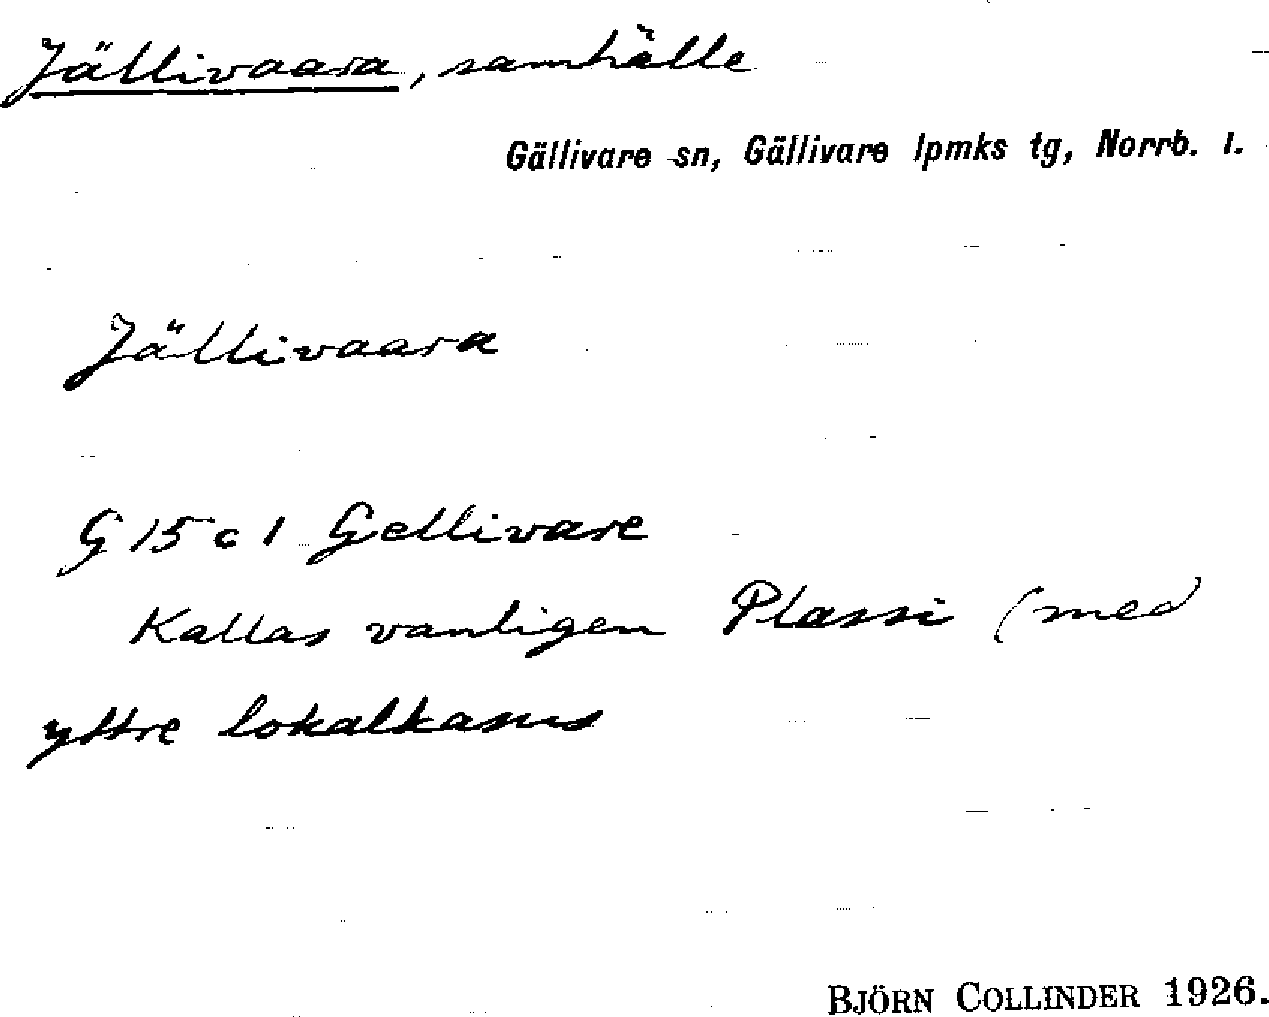 Jällivaara, samhälle
Gällivare sn, Gällivare lpmks tg, Norrb. l.
Jällivaara
G 15 c 1 Gellivare
Kallas vanligen Plassi (med
yttre lokalkasus
BJÖRN COLLINDER 1926.